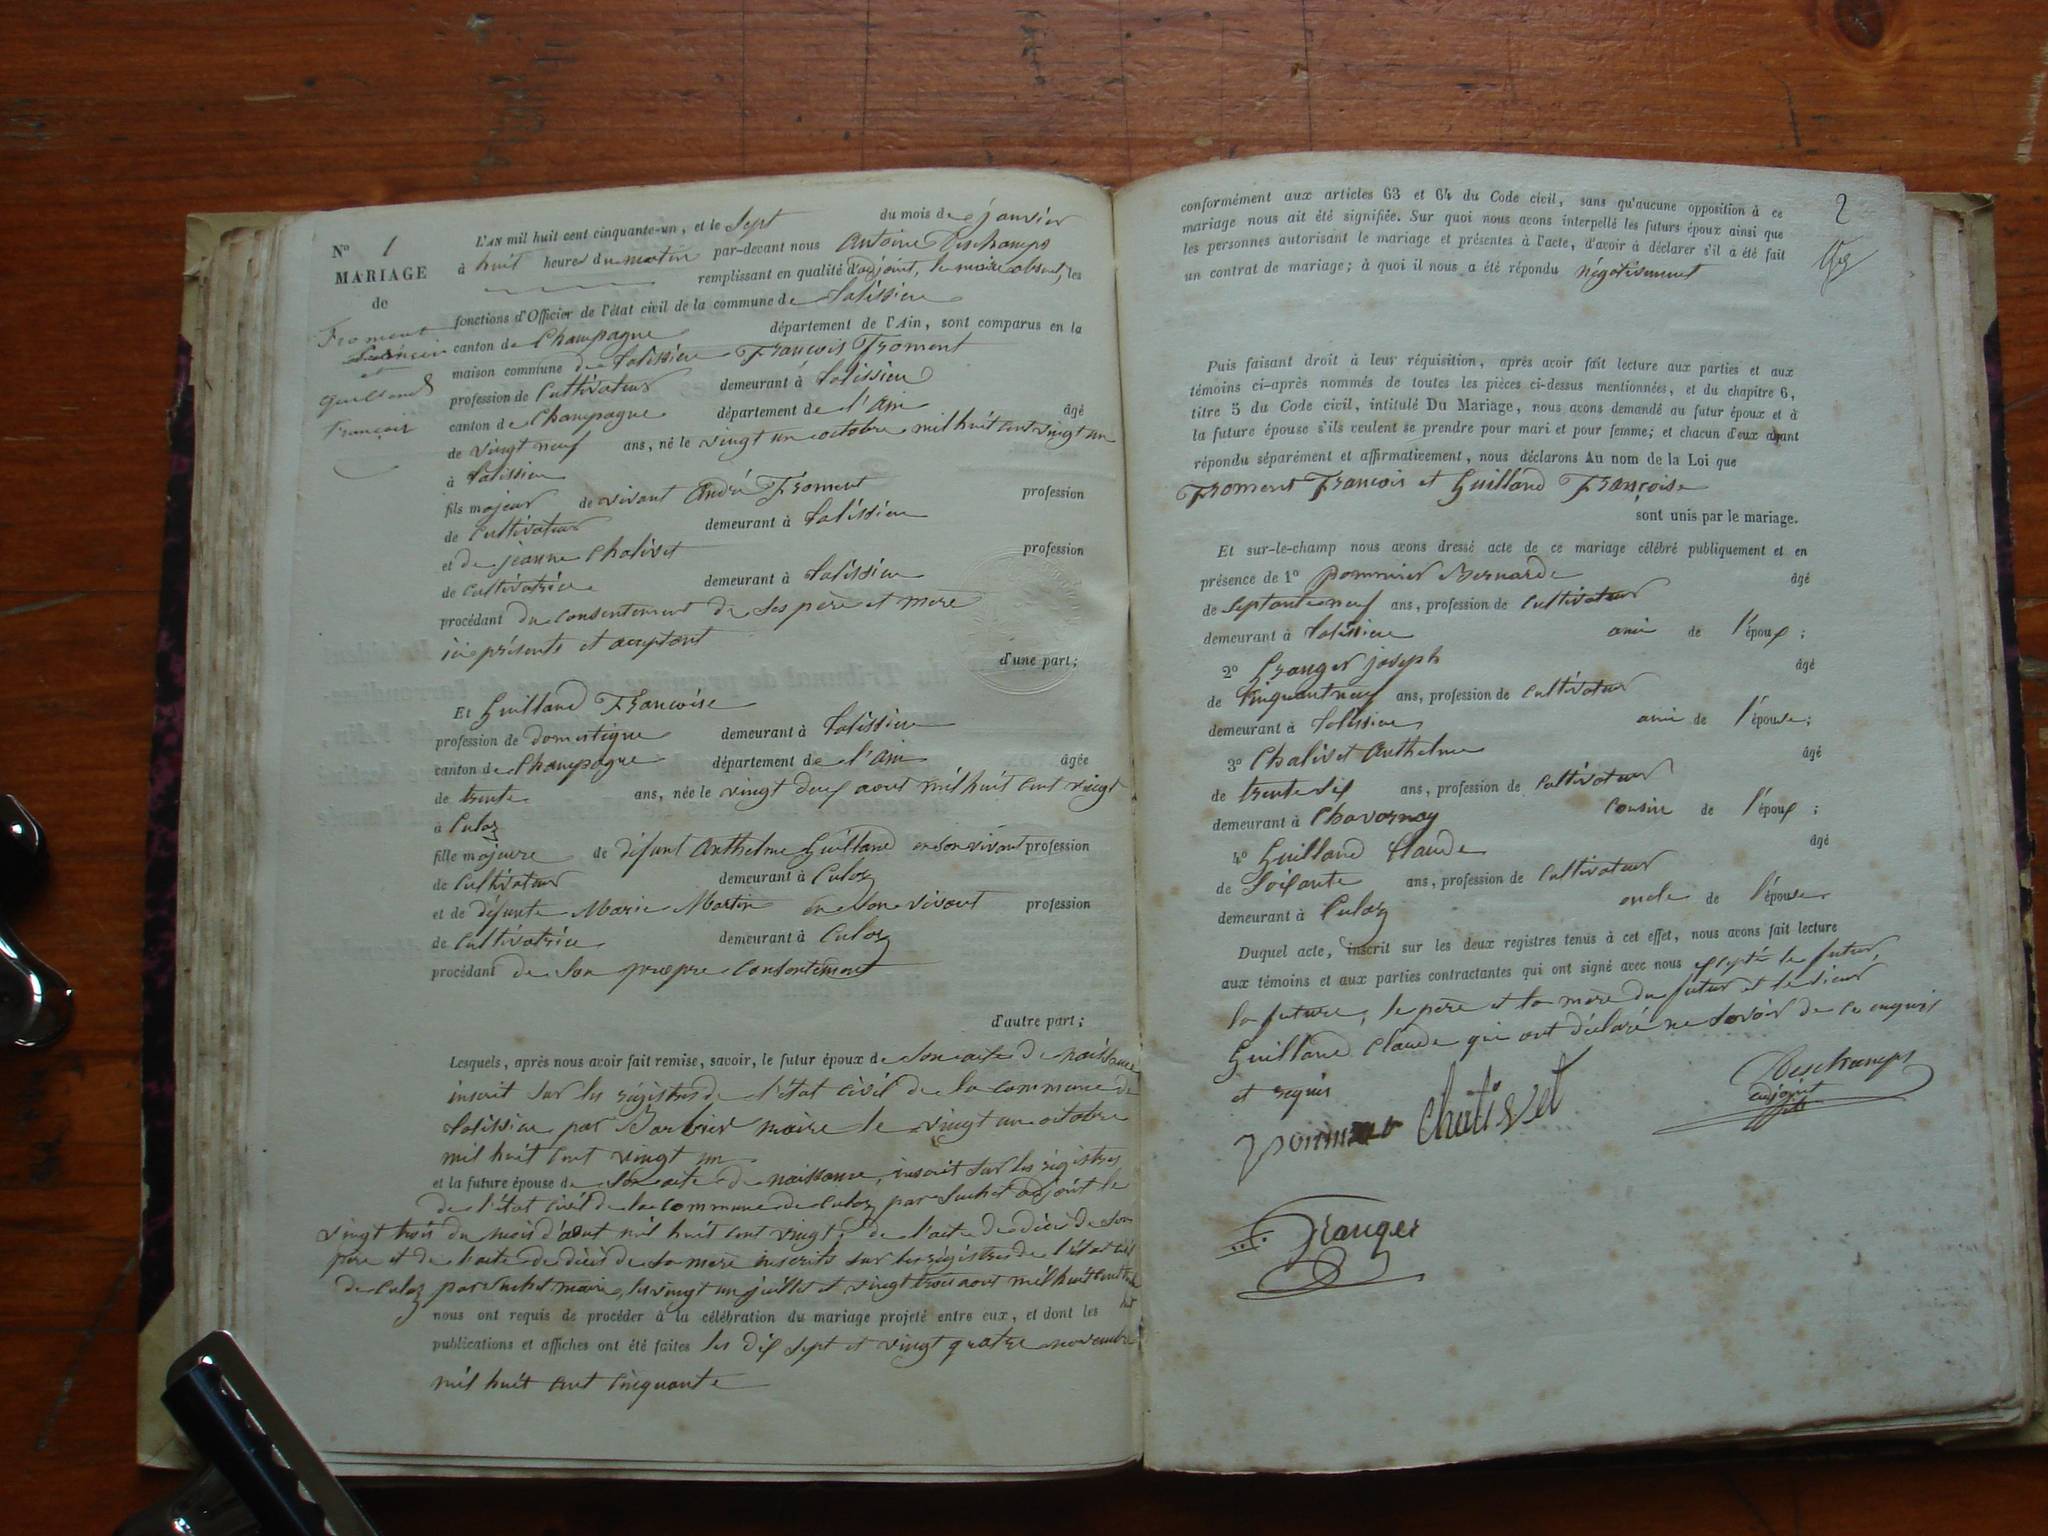 N° 1
MARIAGE
de
Froment
François
et
Guilland
Françoise
L'AN mil huit cent cinquante-un, et le Sept du mois de janvier
à huit heures du matin par-devant nous Antoine Deschamps
remplissant en qualité d'adjoint, le maire absent, les
fonctions d'Officier de l'état civil de la commune de Talissieu
canton de Champagne département de l'Ain, sont comparus en la
maison commune de Talissieu François Froment
profession de Cultivateur demeurant à Talissieu
canton de Champagne département de l'Ain âgé
de vingt neuf ans, né le vingt un octobre mil huit cent vingt un
à Talissieu
fils majeur de vivant André Froment profession
de Cultivateur demeurant à Talissieu
et de jeanne Chalivet profession
de Cultivatrice demeurant à Talissieu
procédant du consentement de ses père et mère
ici présents et acceptant
d'une part;
Et Guilland Françoise
profession de domestique demeurant à Talissieu
canton de Champagne département de l'Ain âgée
de trente ans, née le vingt deux aout mil huit cent vingt
à Culoz
fille majeure de défunt Anthelme Guilland en son vivant profession
de Cultivateur demeurant à Culoz
et de défunte Marie Martin en son vivant profession
de Cultivatrice demeurant à Culoz
procédant de son propre consentement
d'autre part;
Lesquels, après nous avoir fait remise, savoir, le futur époux de son acte de naissance
inscrit sur les régistres de l'état civil de la commune de
Talissieu par Barbier maire le vingt un octobre
mil huit cent vingt un
et la future épouse de son acte de naissance, inscrit sur les régistres
de l'état civil de la commune de Culoz par Suchet adjoint le
vingt trois du mois d'aout mil huit cent vingt, de l'acte de décès de son
père et de l'acte de décès de sa mère inscrits sur les régistres de l'état civil
de Culoz par Suchet maire, les vingt un juillet et vingt trois aout mil huit cent
nous ont requis de procéder à la célébration du mariage projeté entre eux, et dont les
publications et affiches ont été faites les dix sept et vingt quatre novembre
mil huit cent cinquante
2
conformément aux articles 63 et 64 du Code civil, sans qu'aucune opposition à ce
mariage nous ait été signifiée. Sur quoi nous avons interpellé les futurs époux ainsi que
les personnes autorisant le mariage et présentes à l'acte, d'avoir à déclarer s'il a été fait
un contrat de mariage; à quoi il nous a été répondu négativement
Puis faisant droit à leur réquisition, après avoir fait lecture aux parties et aux
témoins ci-après nommés de toutes les pièces ci-dessus mentionnées, et du chapitre 6,
titre 5 du Code civil, intitulé Du Mariage, nous avons demandé au futur époux et à
la future épouse s'ils veulent se prendre pour mari et pour femme; et chacun d'eux ayant
répondu séparément et affirmativement, nous déclarons Au nom de la Loi que
Froment François et Guilland Françoise
sont unis par le mariage.
Et sur-le-champ nous avons dressé acte de ce mariage célébré publiquement et en
présence de 1° Pommier Bernard âgé
de Septante neuf ans, profession de Cultivateur
demeurant à Talissieu ami de l'époux;
2° Granger joseph âgé
de Cinquant neuf ans, profession de Cultivateur
demeurant à Talissieu ami de l'épouse;
3° Chalivet Anthelme âgé
de trente six ans, profession de Cultivateur
demeurant à Chavornay cousin de l'époux;
4° Guilland Claude âgé
de Soixante ans, profession de Cultivateur
demeurant à Culoz oncle de l'épouse
Duquel acte, inscrit sur les deux registres tenus à cet effet, nous avons fait lecture
aux témoins et aux parties contractantes qui ont signé avec nous excepté le futur,
la future, le père et la mère du futur et le sieur
Guilland Claude qui ont déclaré ne savoir de ce enquis
et requis
Deschamps
adjoint
Pommier Chalivet
Granger